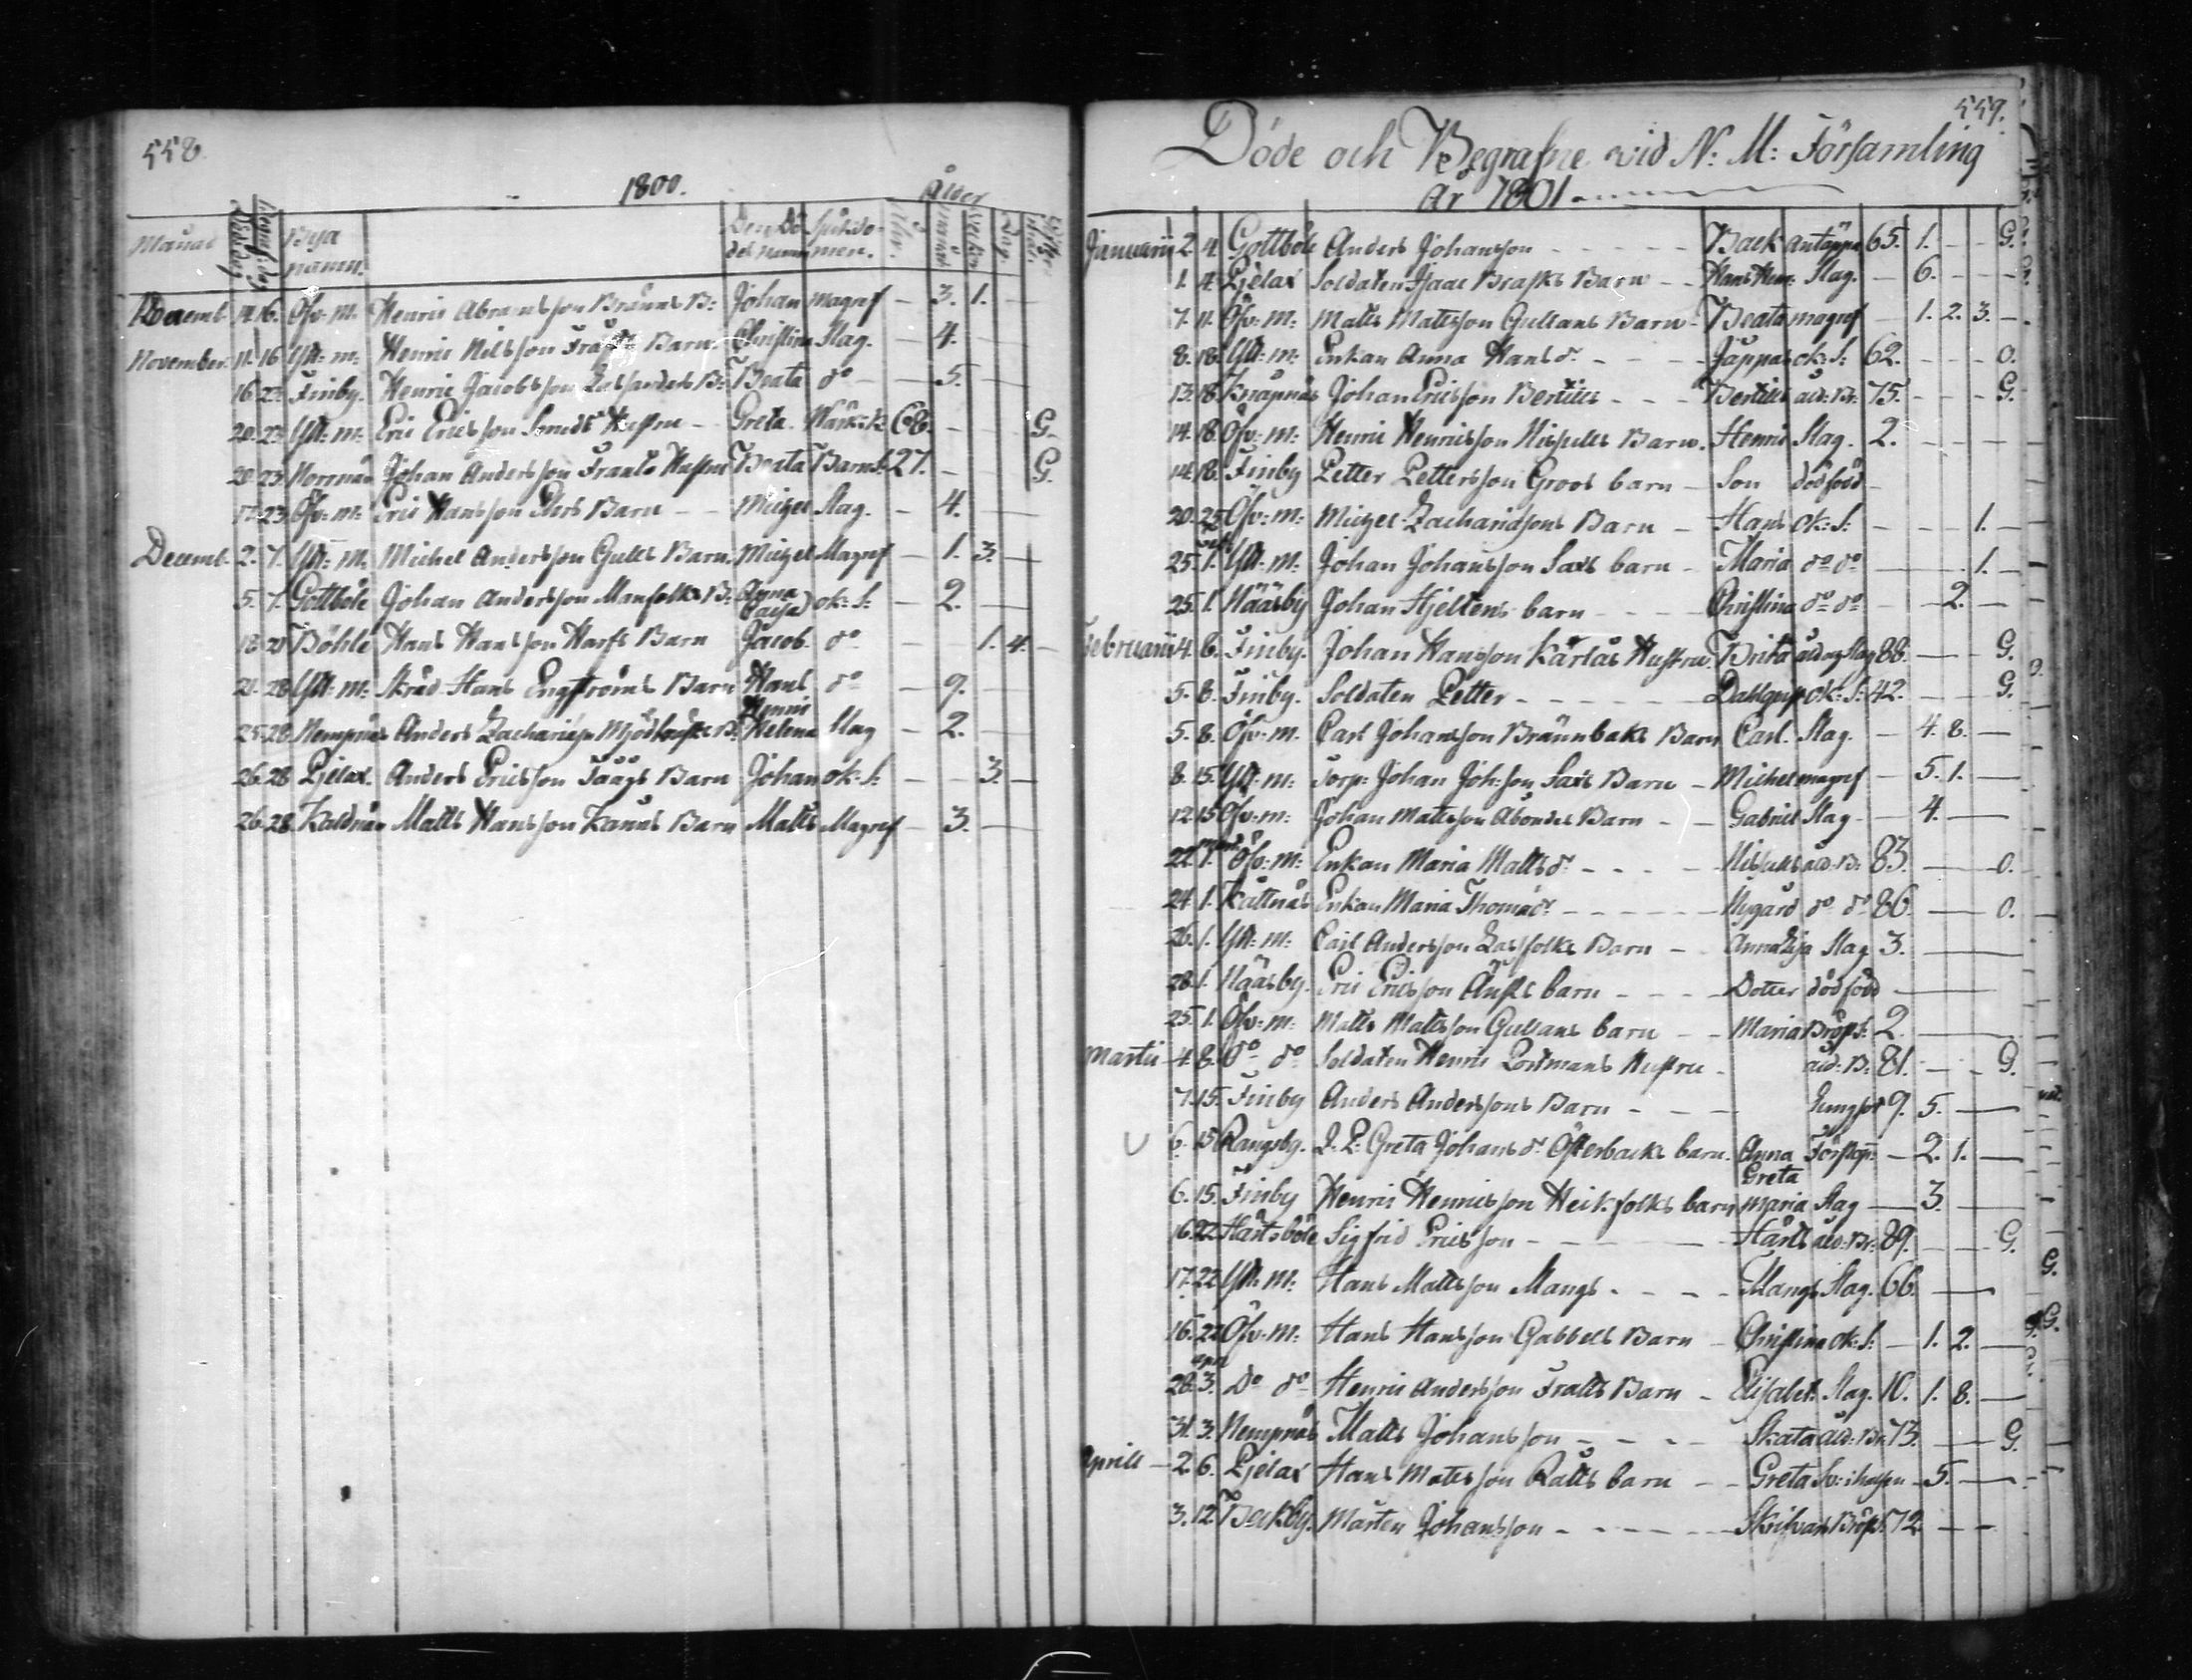 558.
1800.
Ålder
Månad Bya namn. Den Dödes namn Sjukdomen.
Decemb. 14. 16. Öfv: M: Henric Abramsson Bränns B: Johan magref – 3. 1. –
November. 11. 16 Ytt: m: Henric Nilsson Barn. Christina Slag. – 4. –
16. 23. Finby. Henric Jacobsson B: Beata do – 5. –
20. 23 Ytt: m: Eric Ericsson Smeds Hustru – Greta 68. – G.
20. 23 Norrnäs Johan Andersson Frants Hustru Beata Barns: 27. – G.
17. 23 Öfv: M: Eric Hansson Barn – – Michel Slag. – 4. –
Decemb. 2. 7. Ytt: M: Michel Andersson Gulls Barn. Michel Magref – 1. 3. –
5. 7. Gottböle Johan Andersson Manfolks B: Anna Cajsa ok: S: – 2. –
18. 21 Böhle Hans Hansson Harfs Barn Jacob. do – 1. 4. –
21. 28 Ytt: m: Skräd. Hans Engströms Barn Hans do – 9. –
25. 28. Nempnäs Anders B: Helena Slag – 2. –
26. 28 Pjelax. Anders Ericsson Tåågs Barn Johan ok: S: – – 3. –
26. 28. Kaldnäs Matts Hansson Kanns Barn Matts Magref – 3. –
559.
Döde och Begrafne wid N: M: Församling
år 1801.
Januarii 2. 4. Gottböle Anders Johansson – – – Back antäppa 65. 1. – – G.
1. 4. Pjelax Soldaten Isaac Brasks Barn – – Hans Henr: Slag. – 6. – – –
7. 11. Öfv: M: Matts Mattsson Gullans Barn – Beata magref – 1. 2. 3. –
8. 18. Ytt: m: Enkan Anna Hansdr – – – Jäppas ok: S: 62. – – – O.
13. 18. Knåpnäs Johan Ericsson Bertills – – – Bertills åld: Br: 75. – – – G.
14. 18. Öfv: M: Henric Henricsson Nissulls Barn. Henric Slag. 2. – – –
14. 18. Finby Petter Pettersson Groos barn – Son dödfödd –
20. 25 Öfv: M: Michel Zachariæsons Barn – Hans ok: S: – – – 1. –
25. 1. Ytt: M: Johan Johansson Sax's barn – Maria do do – 1. –
25. 1. Nääsby Johan Hjeltens barn – – – Christina do do – 2. –
Februarii 4. 8. Finby. Johan Hansson Kärlax Hustru. Brita åld og Slag 88. – – G.
5. 8. Finby. Soldaten Petter – – – – – Dahlqvist ok: S: 42. – – – G.
5. 8. Öfv: M. Carl Johansson Brännbaks Barn Carl. Slag. – 4. 8. –
8. 15. Ytt: m: Torp: Johan Joh:son Sax's Barn – Michel magref – 5. 1. –
12. 15 Öfv: m: Johan Mattsson Åbondes Barn – – Gabriel Slag – 4. –
22. 1. Öfv: M: Enkan Maria Mattsdr – – – Nissulls åld: Br: 83. – – O.
24. 1. Kåttnäs Enkan Maria Thomædr – – – – – Nygård do do 86. – – O.
26. 1. Ytt: M: Carl Andersson Lassfolks Barn – Anna Lisa Slag 3. –
28. 1. Nääsby. Eric Ericsson barn – – – Dotter dödfödd –
25. 1. Öfv: M: Matts Mattsson Gullans barn – – Maria Bröst: 2. –
Martii – 4. 8. do do Soldaten Henric Postmans Hustru – åld: B: 81. – – G.
7. 15. Finby Anders Anderssons Barn – – – Lungsot 9. 5. –
6. 15 Rangsby. Q: P: Greta Johansdr Österbacks barn. Anna Greta – 2. 1. –
6. 15. Finby Henric Henricsson Heikfolks barn Maria Slag – 3. –
16. 22 Härtsböle Sigfrid Ericsson – – – – – – Härtls åld: Br: 89. – – G.
17. 22 Ytt: M: Hans Mattsson Mangs – – – – Mangs Slag. 66. –
16. 22 Öfv: M: Hans Hansson Gabbels Barn – Christina ok: S: – 1. 2. –
28. 3. Do do Henric Andersson Fratts Barn – Elisabet. Slag. 10. 1. 8. –
31. 3. Nempnäs Matts Johansson – – – – Skata åld: Br: 73. – – G.
Aprill – 2. 6. Pjelax Hans Mattsson Ratts barn – – Greta – 5. –
3. 12. Backby. Mårten Johansson – – – – – Skrifvars Bröst: 72 – –